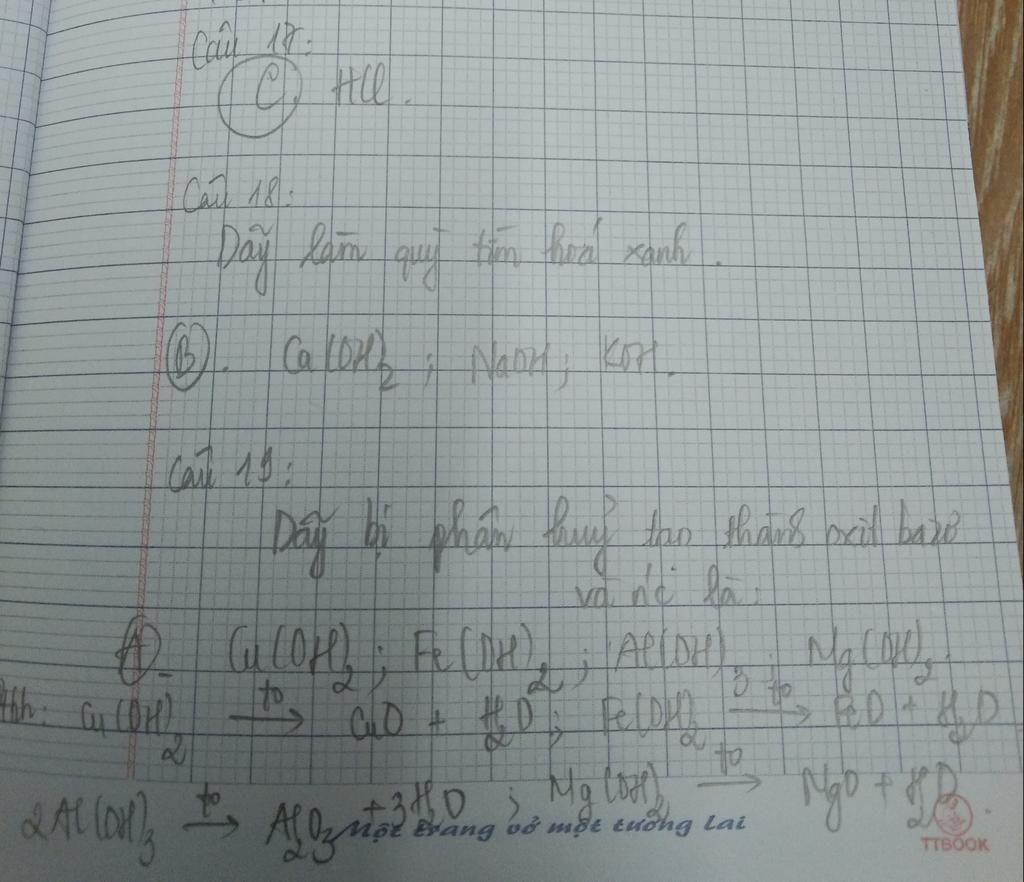 Câu 17:
C. HCl.
Câu 18:
Dãy làm quỳ tím hoá xanh.
B. Ca(OH)2; NaOH; KOH.
Câu 19:
Dãy bị phân huỷ tạo thành oxit bazơ
và nc là:
A. Cu(OH)2; Fe(OH)2; Al(OH)3; Mg(OH)2
Pth: Cu(OH)2 —to→ CuO + H2O; Fe(OH)2 —to→ FeO + H2O
2Al(OH)3 —to→ Al2O3 + 3H2O; Mg(OH)2 —to→ MgO + H2O.
Một trang vở một tương lai
TTBOOK